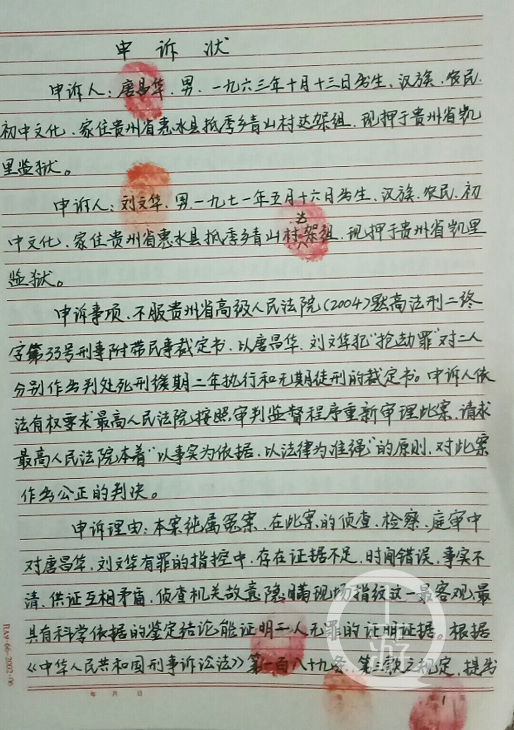 申诉状
申诉人：唐昌华，男，一九六三年十月十三日出生，汉族，农民，
初中文化，家住贵州省惠水县抵季乡青山村达架组，现押于贵州省凯
里监狱。
申诉人：刘文华，男一九七一年五月十六日出生，汉族，农民，初
中文化，家住贵州省惠水县抵季乡青山村达架组，现押于贵州省凯里
监狱。
申诉事项，不服贵州省高级人民法院(2004)黔高法刑二终
字第33号刑事附带民事裁定书，以唐昌华、刘文华犯"抢劫罪"对二人
分别作出判处死刑缓期二年执行和无期徒刑的裁定书。申诉人依
法有权要求最高人民法院按照审判监督程序重新审理此案，请求
最高人民法院本着"以事实为依据，以法律为准绳"的原则，对此案
作出公正的判决。
申诉理由：本案纯属冤案，在此案的侦查、检察、庭审中
对唐昌华、刘文华有罪的指控中，存在证据不足，时间错误，事实不
清，供证互相矛盾，侦查机关故意隐瞒现场指纹这一最客观、最
具有科学依据的鉴定结论能证明二人无罪的证明证据。根据
《中华人民共和国刑事诉讼法》第一百八十九条，第三款之规定，提出
年 月 日
1
上游